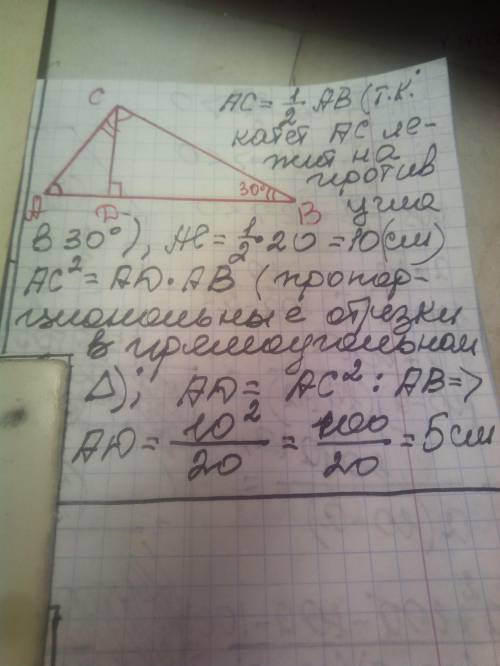 C
A
D
B
30°
AC = 1/2 AB (т.к.
катет AC ле-
жит на
против
угла
в 30°), AC = 1/2 · 20 = 10 (см)
AC² = AD · AB (пропор-
циональные отрезки
в прямоугольном
Δ); AD = AC² : AB =>
AD = 10²/20 = 100/20 = 5 см